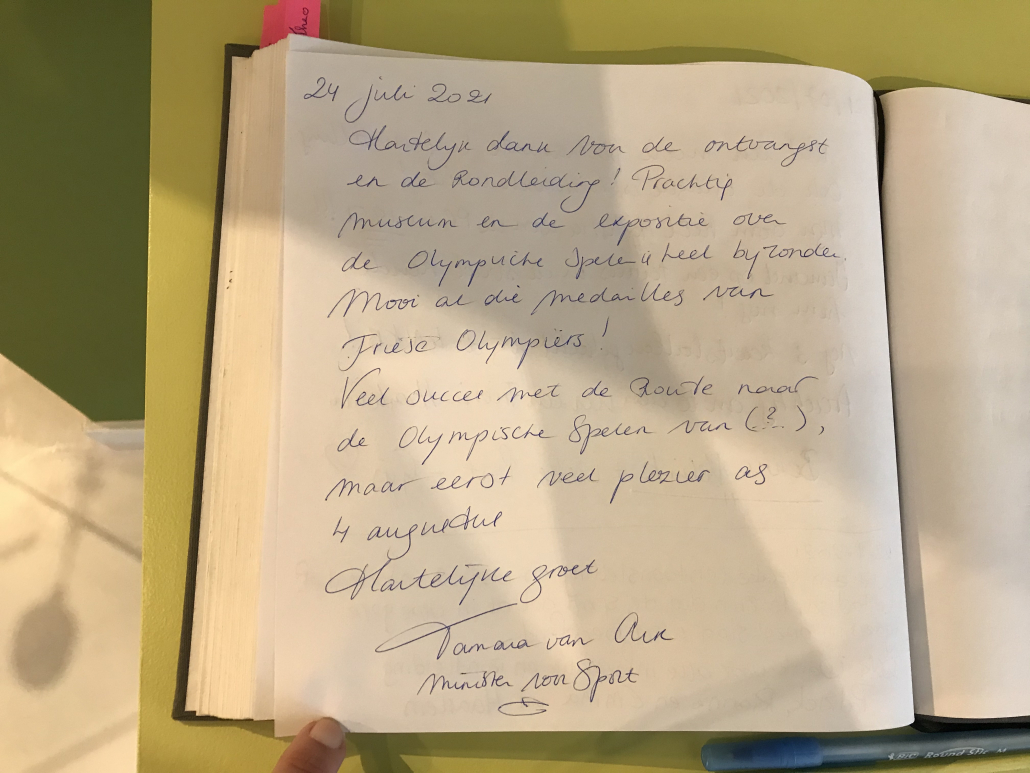 Theo
24 juli 2021
Hartelijk dank voor de ontvangst
en de Rondleiding! Prachtig
museum en de expositie over
de Olympische Spelen is heel bijzonder.
Mooi al die medailles van
Friese Olympiërs!
Veel succes met de Route naar
de Olympische Spelen van (?),
maar eerst veel plezier as
4 augustus
Hartelijke groet
Tamara van Ark
Minister voor Sport
BIC Round Stic M